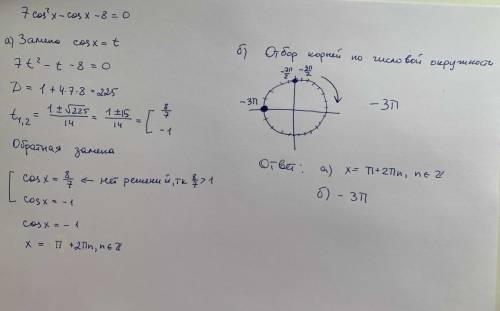 7cos²x - cosx - 8 = 0
а) Замена cosx = t
7t² - t - 8 = 0
D = 1 + 4·7·8 = 225
t₁,₂ = (1 ± √225)/14 = (1 ± 15)/14 = [ 8/7
-1
Обратная замена
[ cosx = 8/7 ← нет решений, тк 8/7 > 1
cosx = -1
cosx = -1
x = π + 2πn, n ∈ ℤ
б) Отбор корней по числовой окружности
-3π/2
-3π
-3π
Ответ: а) x = π + 2πn, n ∈ ℤ
б) - 3π